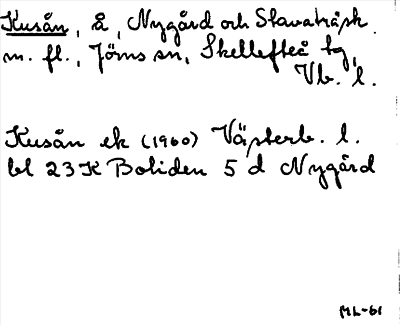 Kusån, å, Nygård och Slavaträsk
m. fl., Jörns sn, Skellefteå tg,
Vb. l.
Kusån ek (1960) Västerb. l.
bl 23 K Boliden 5 d Nygård
ML-61